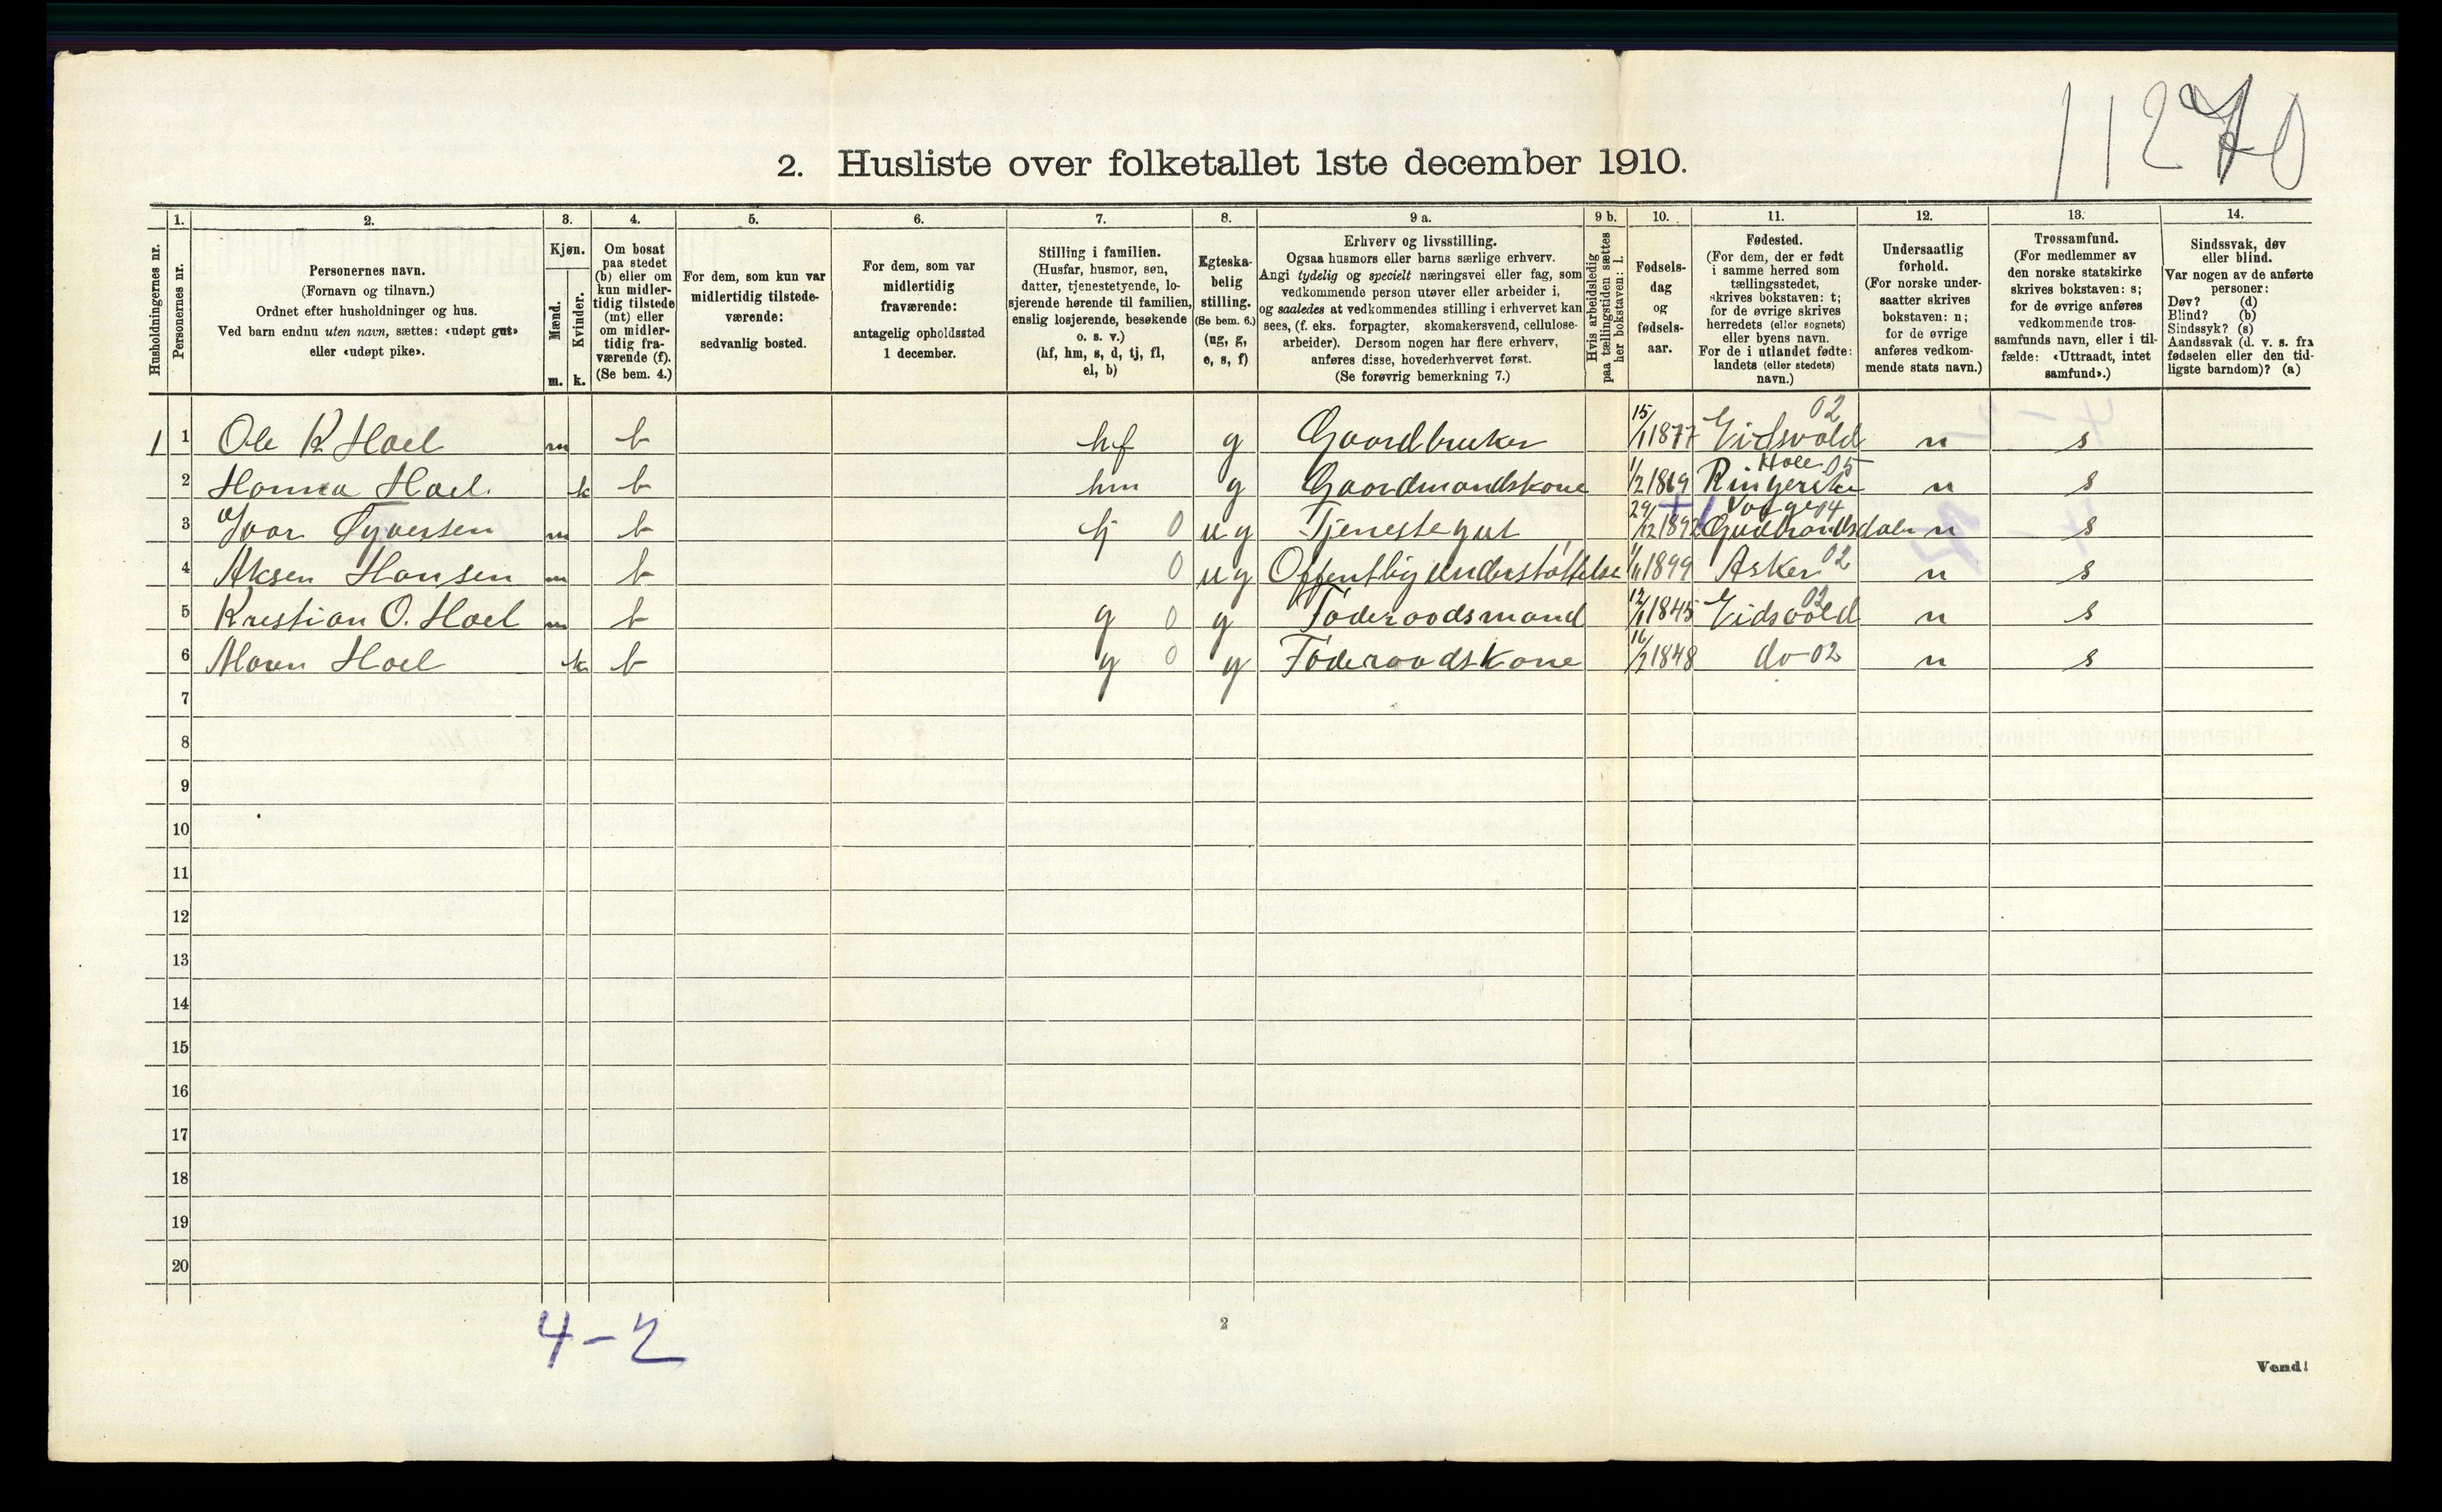 11270
2. Husliste over folketallet 1ste december 1910.
Husholdningernes nr.
1. Personernes nr.
2. Personernes navn.
(Fornavn og tilnavn.)
Ordnet efter husholdninger og hus.
Ved barn endnu uten navn, sættes: «udøpt gut»
eller «udøpt pike».
3. Kjøn.
Mænd. m.
Kvinder. k.
4. Om bosat
paa stedet
(b) eller om
kun midler-
tidig tilstede
(mt) eller
om midler-
tidig fra-
værende (f).
(Se bem. 4.)
5. For dem, som kun var
midlertidig tilstede-
værende:
sedvanlig bosted.
6. For dem, som var
midlertidig
fraværende:
antagelig opholdssted
1 december.
7. Stilling i familien.
(Husfar, husmor, søn,
datter, tjenestetyende, lo-
sjerende hørende til familien,
enslig losjerende, besøkende
o. s. v.)
(hf, hm, s, d, tj, fl,
el, b)
8. Egteska-
belig
stilling.
(Se bem. 6.)
(ug, g,
e, s, f)
9 a. Erhverv og livsstilling.
Ogsaa husmors eller barns særlige erhverv.
Angi tydelig og specielt næringsvei eller fag, som
vedkommende person utøver eller arbeider i,
og saaledes at vedkommendes stilling i erhvervet kan
sees, (f. eks. forpagter, skomakersvend, cellulose-
arbeider). Dersom nogen har flere erhverv,
anføres disse, hovederhvervet først.
(Se forøvrig bemerkning 7.)
9 b. Hvis arbeidsledig
paa tællingstiden sættes
her bokstaven: l.
10. Fødsels-
dag
og
fødsels-
aar.
11. Fødested.
(For dem, der er født
i samme herred som
tællingsstedet,
skrives bokstaven: t;
for de øvrige skrives
herredets (eller sognets)
eller byens navn.
For de i utlandet fødte:
landets (eller stedets)
navn.)
12. Undersaatlig
forhold.
(For norske under-
saatter skrives
bokstaven: n;
for de øvrige
anføres vedkom-
mende stats navn.)
13. Trossamfund.
(For medlemmer av
den norske statskirke
skrives bokstaven: s;
for de øvrige anføres
vedkommende tros-
samfunds navn, eller i til-
fælde: «Uttraadt, intet
samfund».)
14. Sindssvak, døv
eller blind.
Var nogen av de anførte
personer:
Døv? (d)
Blind? (b)
Sindssyk? (s)
Aandssvak (d. v. s. fra
fødselen eller den tid-
ligste barndom)? (a)
1 1 Ole K Hoel m b hf g Gaardbruker 15/1 1877 Eidsvold 02 n s
2 Hanna Hoel. k b hm g Gaardmandskone 1/2 1869 Ringerike Hole 05 n s
3 Ivar Syversen m b tj 0 ug Tjenestegut 29/12 1892 Gudbrandsdalen Vaage 04 n s
4 Aksen Hansen m b 0 ug Offentlig understøttelse 1/11 1899 Asker 02 n s
5 Kristian O. Hoel m b g 0 g Føderaadsmand 12/11 1845 Eidsvold 02 n s
6 Maren Hoel k b g 0 g Føderaadskone 16/2 1848 do 02 n s
7
8
9
10
11
12
13
14
15
16
17
18
19
20
4-2
2
Vend!